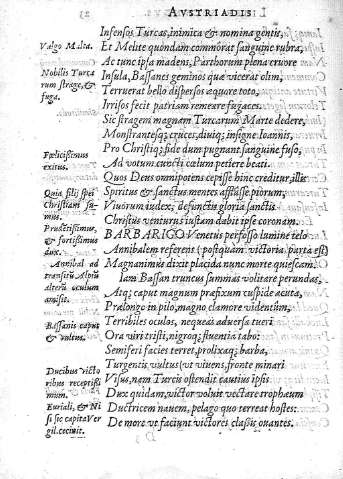 AVSTRIADIS
Infensos Turcas, inimica & nomina gentis,
Valgo Malta.
Et Melite quondam commorat sanguine rubra,
Ac tunc ipsa madens, Parthorum plena cruore
Nobilis Turca
rum strage, &
fuga.
Insula, Bassanes geminos quæ vicerat olim,
Terruerat bello dispersos æquore toto,
Irrisos fecit patriam remeare fugaces.
Sic stragem magnam Turcarum Marte dedere,
Monstrantesq; cruces, diuiq; insigne Ioannis,
Pro Christiq; fide dum pugnant sanguine fuso,
Fœlicissimus
exitus.
Ad votum cuncti cœlum petiere beati.
Quos Deus omnipotens cepisse hinc creditur, ille
Quia filij spei
Christiam su-
mus.
Spiritus & sanctus mentes afflasse piorum,
Viuorum iudex, defunctis gloria sanctis
Christus venturus iustam dabit ipse coronam.
Præsétissimus,
& fortissimus
dux.
BARBARIGO Venetus perfosso lumine telo
Annibalem referens (postquam victoria parta est)
Annibal ad
transitũ Alpiũ
alterũ oculum
amisit.
Magnanimus dixit placida nunc morte quiescam.
Iam Bassan truncus summas volitare per undas,
Atq; caput magnum præfixum cuspide acuta,
Prælongo in pilo, magno clamore videntum,
Bassanis caput
& vultus.
Terribiles oculos, nequeas aduersa tueri
Ora viri tristi, nigroq; fluentia tabo:
Semiferi facies terret, prolixaq; barba,
Turgentis vultus (vt viuens, fronte minari
Ducibus victo
ribus receptissi
mum.
Visus, nam Turcis ostendit cautius ipsis
Dux quidam, victor voluit vectare trophæum
Euriali, & Ni
si sic capita Ver
gil. cecinit.
Ductricem nauem, pelago quo terreat hostes:
De more vt faciunt victores classis ouantes.